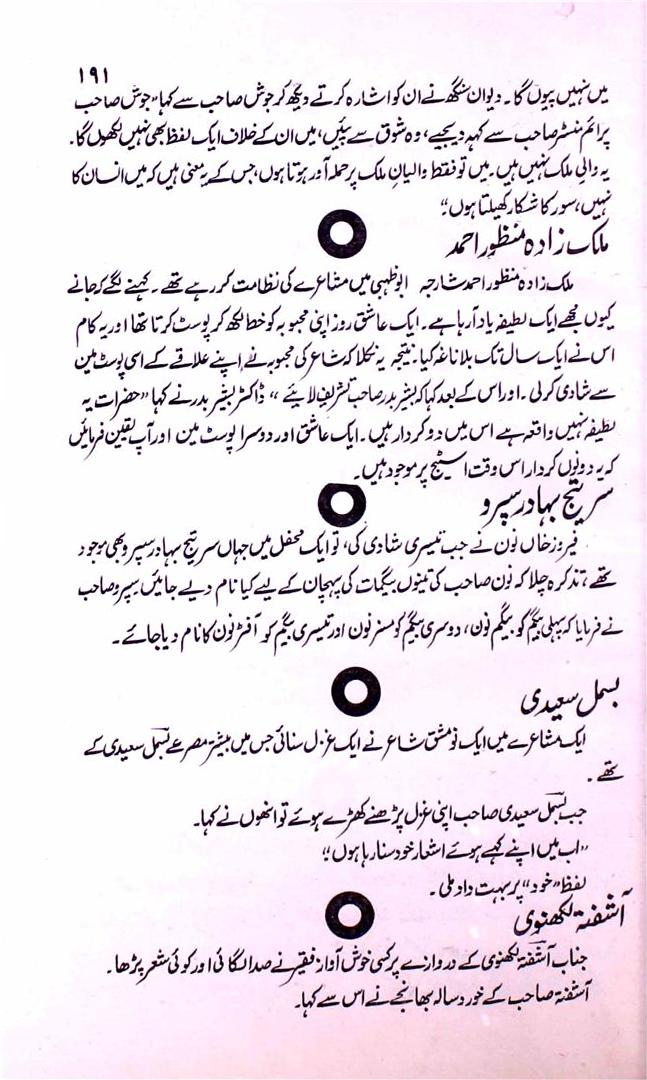 ۱۹۱
میں نہیں پیوں گا۔ دیوان سنگھ نے ان کو اشارہ کرتے دیکھ کر جوش صاحب سے کہا "جوش صاحب
پرائم منسٹر صاحب سے کہہ دیجیے، وہ شوق سے پئیں، میں ان کے خلاف ایک لفظ بھی نہیں لکھوں گا۔
یہ والیِ ملک نہیں ہیں۔ میں تو فقط والیانِ ملک پر حملہ آور ہوتا ہوں، جس کے یہ معنی ہیں کہ میں انسان کا
نہیں، سور کا شکار کھیلتا ہوں"
ملک زادہ منظور احمد
ملک زادہ منظور احمد شارجہ ابوظہبی میں مشاعرے کی نظامت کر رہے تھے۔ کہنے لگے کہ جانے
کیوں مجھے ایک لطیفہ یاد آرہا ہے۔ ایک عاشق روز اپنی محبوبہ کو خط لکھ کر پوسٹ کرتا تھا اور یہ کام
اس نے ایک سال تک بلا ناغہ کیا۔ نتیجہ یہ نکلا کہ شاعر کی محبوبہ نے اپنے علاقے کے اسی پوسٹ مین
سے شادی کرلی۔ اور اس کے بعد کہا کہ بشیر بدر صاحب تشریف لایئے" ڈاکٹر بشیر بدر نے کہا "حضرات یہ
لطیفہ نہیں واقعہ ہے اس میں دو کردار ہیں۔ ایک عاشق اور دوسرا پوسٹ مین اور آپ یقین فرمائیں
کہ یہ دونوں کردار اس وقت اسٹیج پر موجود ہیں۔
سر تیج بہادر سپرو
فیروز خاں نون نے جب تیسری شادی کی، تو ایک محفل میں جہاں سر تیج بہادر سپرو بھی موجود
تھے، تذکرہ چلا کہ نون صاحب کی تینوں بیگمات کی پہچان کے لیے کیا نام دیے جائیں۔ سپرو صاحب
نے فرمایا کہ پہلی بیگم کو بیگم نون، دوسری بیگم کو مسز نون اور تیسری بیگم کو آفٹر نون کا نام دیا جائے۔
بسمل سعیدی
ایک مشاعرے میں ایک نو مشق شاعر نے ایک غزل سنائی جس میں بیشتر مصرعے بسمل سعیدی کے
تھے۔
جب بسمل سعیدی صاحب اپنی غزل پڑھنے کھڑے ہوئے تو انھوں نے کہا۔
"اب میں اپنے کہے ہوئے اشعار خود سنا رہا ہوں"
لفظ "خود" پر بہت داد ملی۔
آشفتہ لکھنوی
جناب آشفتہ لکھنوی کے دروازے پر کسی خوش آواز فقیر نے صدا لگائی اور کوئی شعر پڑھا۔
آشفتہ صاحب کے خورد سالہ بھانجے نے اس سے کہا۔